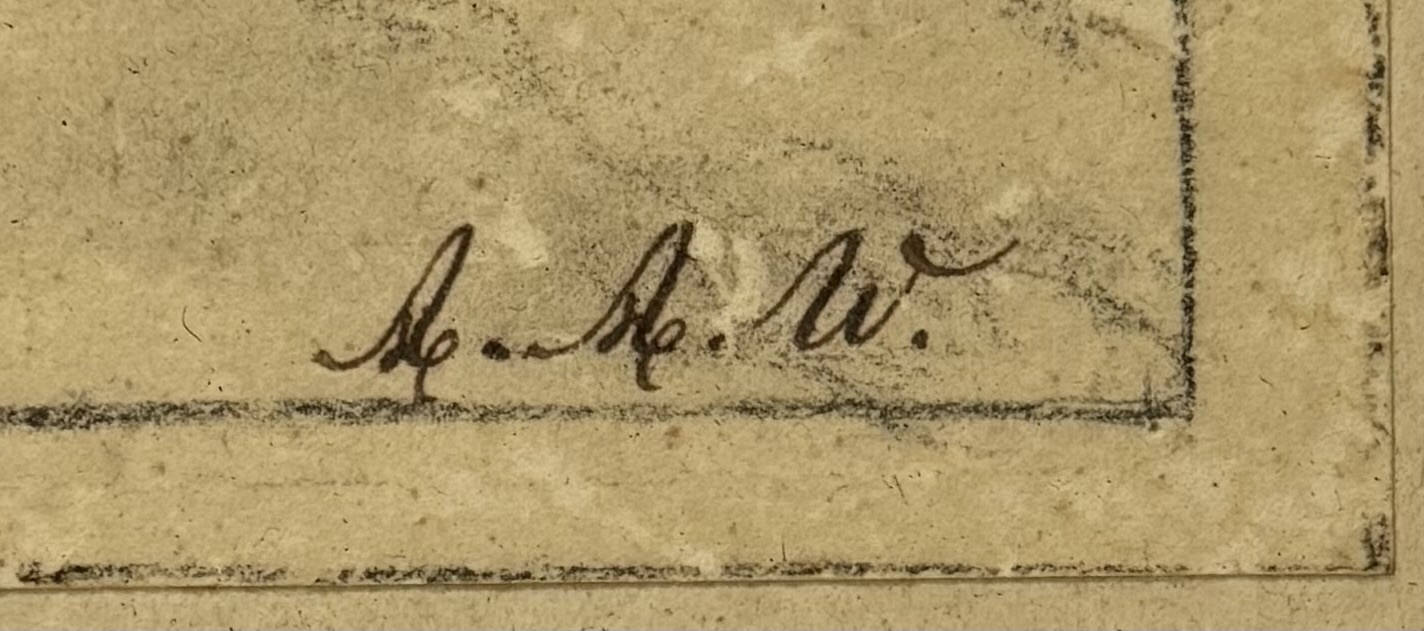 A. A. W.